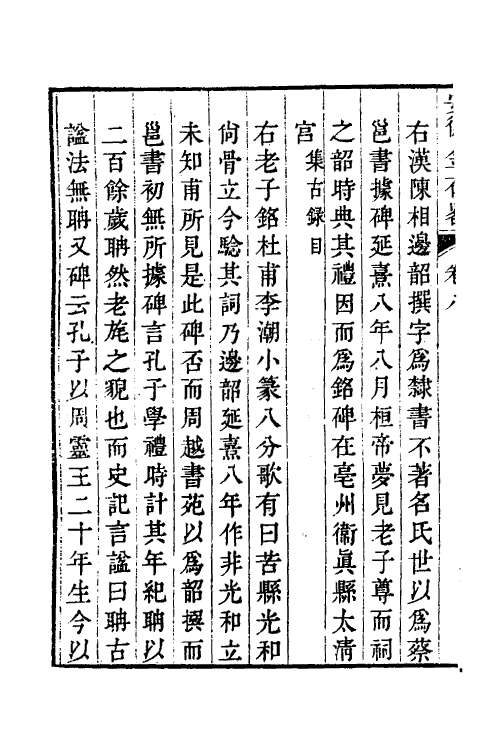 右漢陳相邊韶撰字爲隸書不著名氏世以爲蔡
邕書據碑延熹八年八月桓帝夢見老子尊而祠
之韶時典其禮因而爲銘碑在亳州衞眞縣太淸
宮集古錄目
右老子銘杜甫李潮小篆八分歌有曰苦縣光和
尙骨立今驗其詞乃邊韶延熹八年作非光和立
未知甫所見是此碑否而周越書苑以爲韶撰而
邕書初無所據碑言孔子學禮時計其年紀聃以
二百餘歲聃然老旄之貌也而史記言諡曰聃古
諡法無聃又碑云孔子以周靈王二十年生今以
卷八